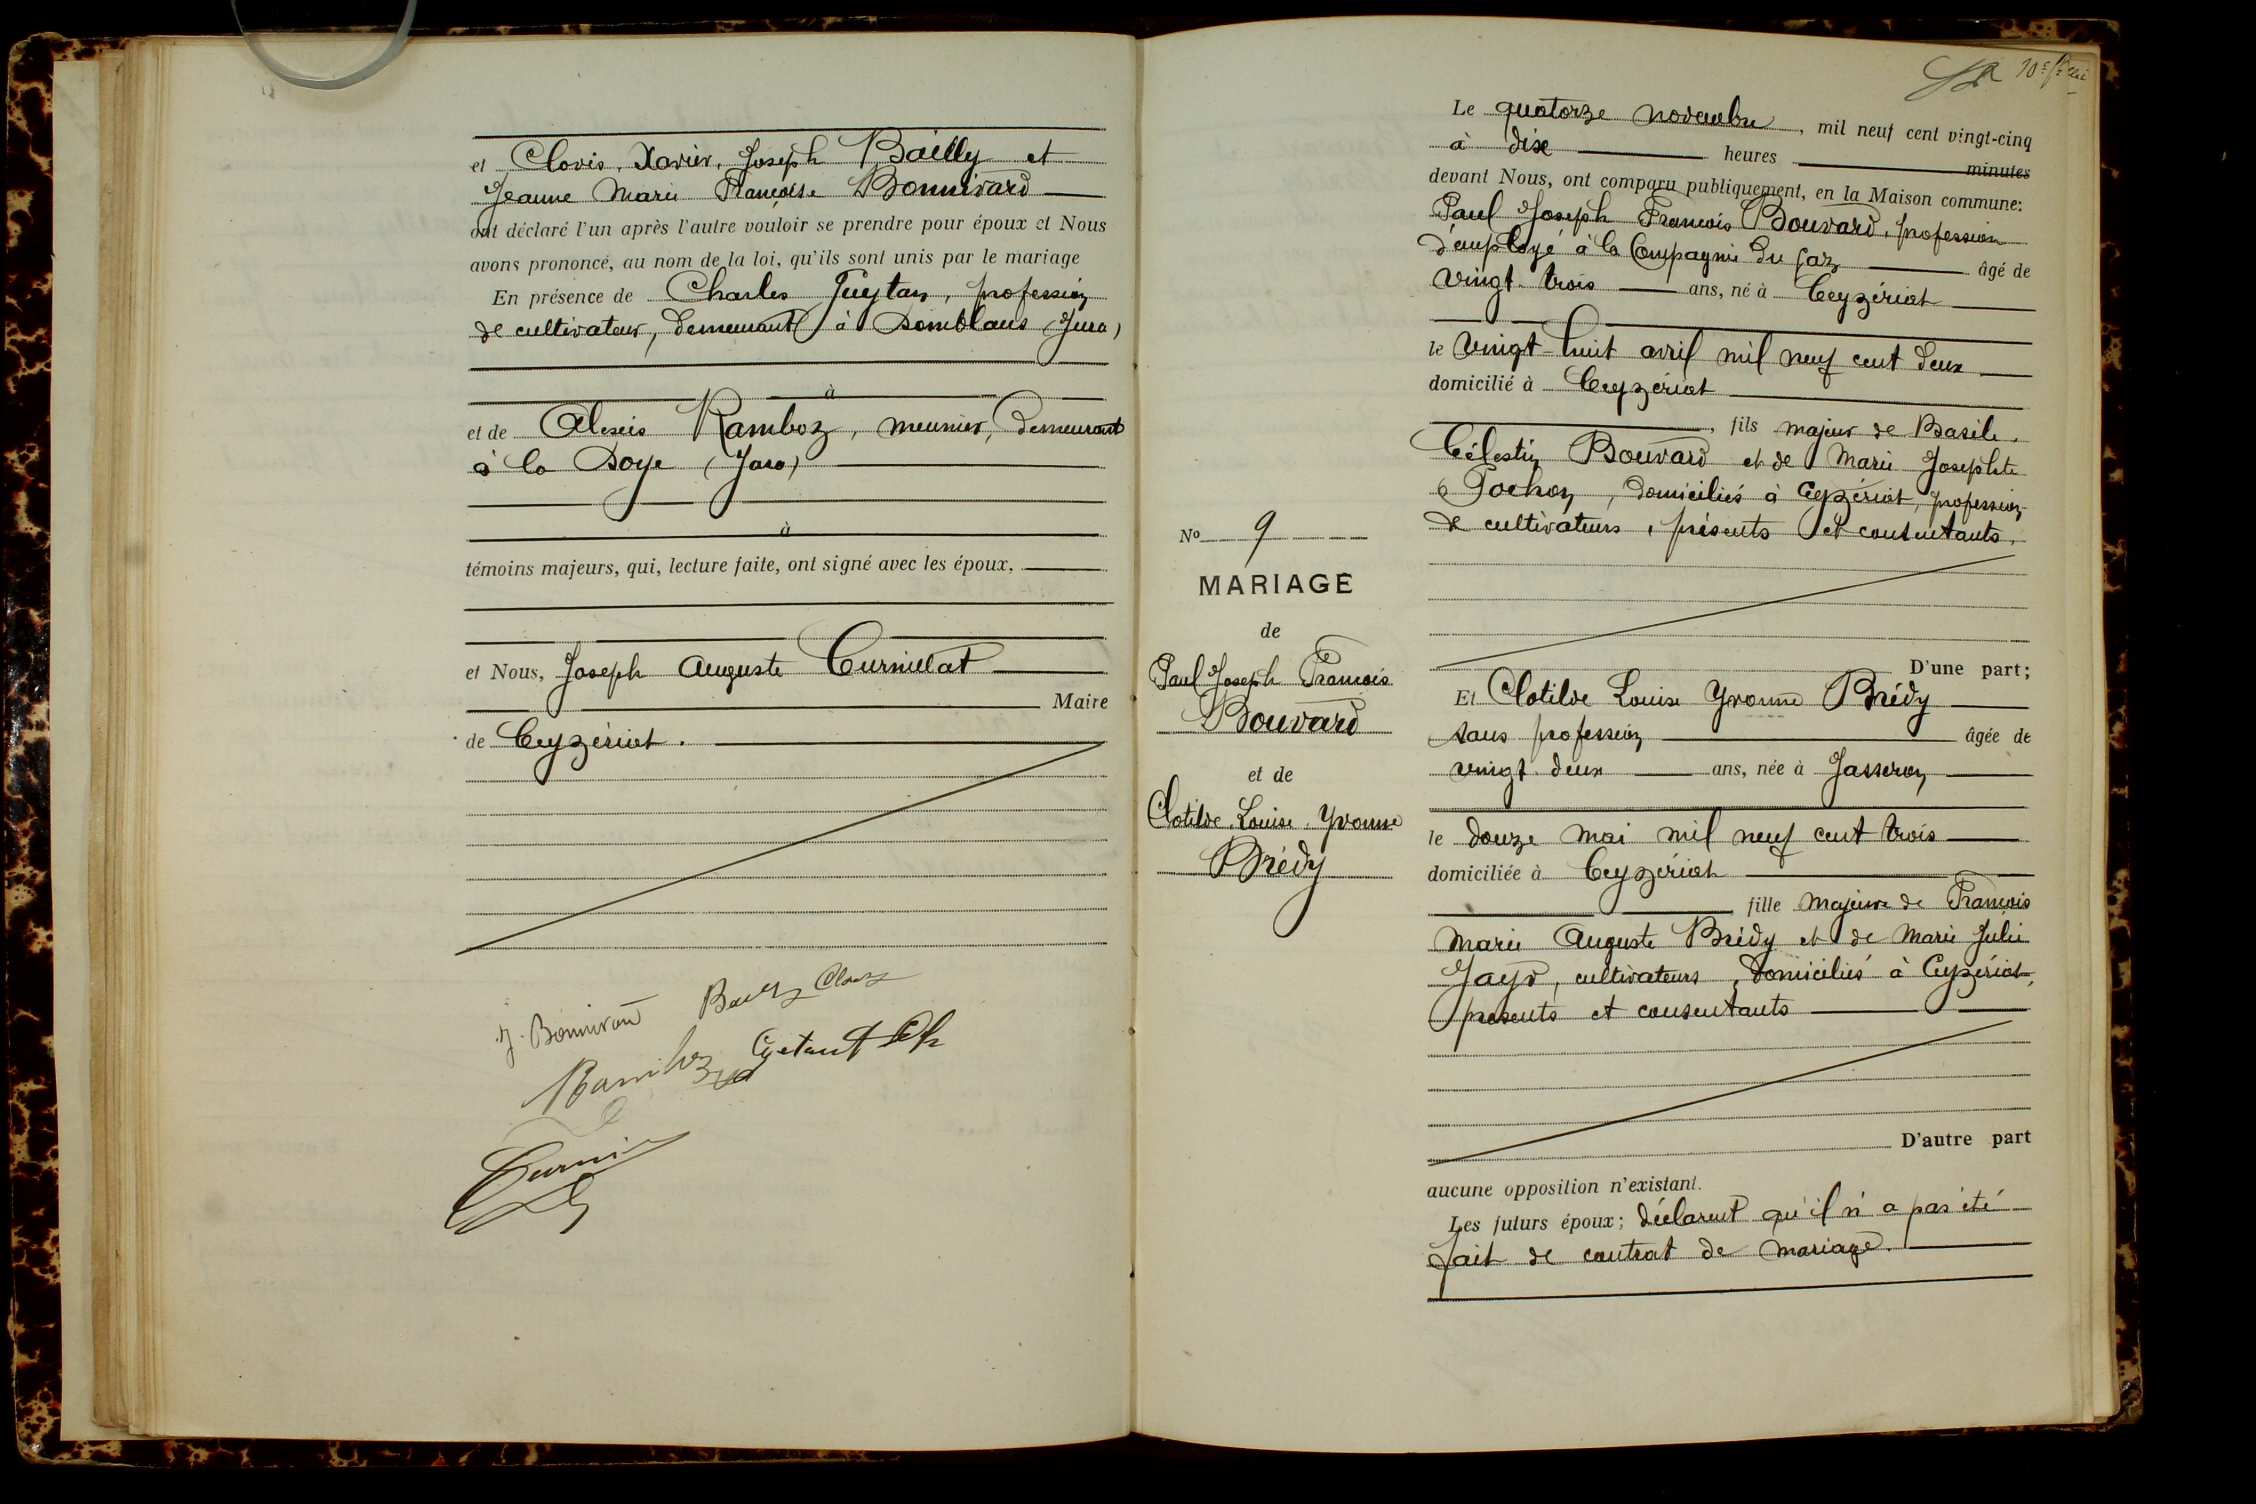 et Clovis, Xavier, Joseph Bailly et
Jeanne Marie Françoise Bonnivard
ont déclaré l'un après l'autre vouloir se prendre pour époux et Nous
avons prononcé, au nom de la loi, qu'ils sont unis par le mariage
En présence de Charles , profession
de cultivateur, demeurant à Domblans (Jura)
à
et de Alexis Ramboz, meunier, demeurant
à la Doye (Jura)
à
témoins majeurs, qui, lecture faite, ont signé avec les époux,
et Nous, Joseph Auguste Curnillat
Maire
de Ceyzériat.
J. Bonnivard Bailly Clovis
Ramboz
Nº 9
MARIAGE
de
Paul Joseph François
Bouvard
et de
Clotilde, Louise, Yvonne
Brédy
10e
Le quatorze novembre, mil neuf cent vingt-cinq
à dix heures minutes
devant Nous, ont comparu publiquement, en la Maison commune:
Paul Joseph François Bouvard, profession
d'employé à la Compagnie du Gaz âgé de
vingt-trois ans, né à Ceyzériat
le vingt-huit avril mil neuf cent deux
domicilié à Ceyzériat
, fils majeur de Basile,
Célestin Bouvard et de Marie Josephte
Pochon, domiciliés à Ceyzériat, profession
de cultivateurs, présents et consentants.
D'une part;
Et Clotilde Louise Yvonne Brédy
sans profession âgée de
vingt-deux ans, née à Jasseron
le douze mai mil neuf cent trois
domiciliée à Ceyzériat
fille majeure de François
Marie Auguste Brédy et de Marie Julie
Jayr, cultivateurs, domiciliés à Ceyzériat,
présents et consentants
D'autre part
aucune opposition n'existant.
Les futurs époux; déclarent qu'il n'a pas été
fait de contrat de mariage.